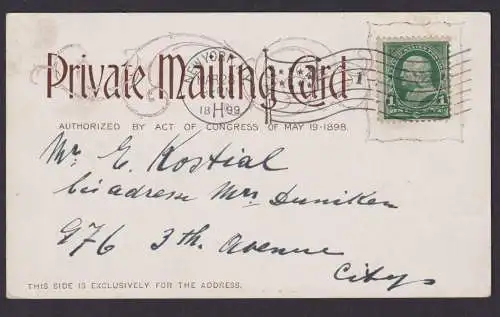 Private Mailing Card
NEW YORK
1899
H
1
1 1
AUTHORIZED BY ACT OF CONGRESS OF MAY 19-1898.
Mr. E. Kostial
Mrs. Duniken
976 3th. Avenue
City
THIS SIDE IS EXCLUSIVELY FOR THE ADDRESS.